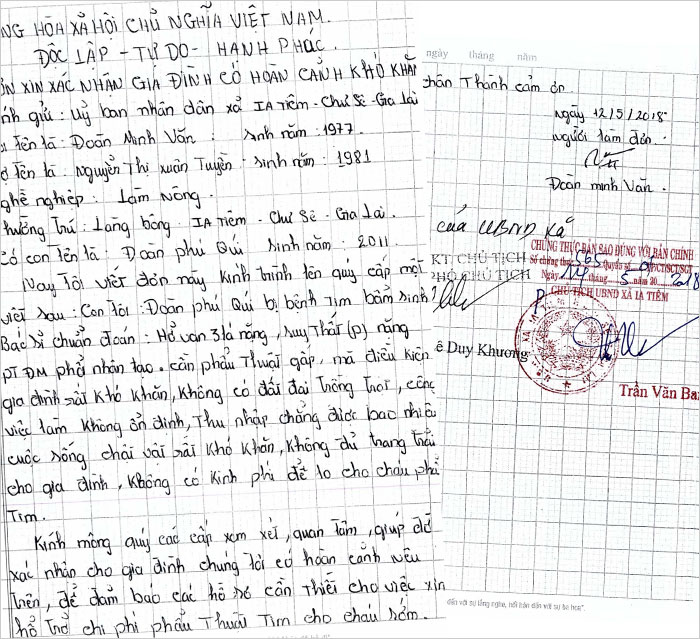 NG HÒA XÃ HỘI CHỦ NGHĨA VIỆT NAM.
ĐỘC LẬP - TỰ DO - HẠNH PHÚC.
ƠN XIN XÁC NHẬN GIA ĐÌNH CÓ HOÀN CẢNH KHÓ KHĂN
ính gửi: Uỷ ban nhân dân xã IA Tiêm - Chư Sê - Gia Lai
tên là: Đoàn Minh Văn : sinh năm: 1977
tên là: Nguyễn Thị Xuân Tuyền - Sinh năm: 1981
ghề nghiệp: Làm Nông.
hường trú: Làng bông - IA Tiêm - Chư Sê - Gia Lai.
có con tên là: Đoàn phú Quí Sinh năm: 2011
Nay tôi viết đơn này kính trình lên quý cấp một
việc sau: Con tôi: Đoàn phú Quí bị bệnh tim bẩm sinh
Bác sĩ chuẩn đoán: Hở van 3 lá nặng, suy thất (p) nặng
PT ĐM phổ nhân tạo. cần phẩu thuật gấp, mà điều kiện
gia đình rất khó khăn, không có đất đai trồng trọt, công
việc làm không ổn định, Thu nhập chẳng được bao nhiêu
cuộc sống chải vất rất khó khăn, không đủ trang trải
cho gia đình, không có kinh phí để lo cho cháu phẩ
Tim.
Kính mong quý các cấp xem xét, quan tâm, giúp đỡ
xác nhận cho gia đình chúng tôi có hoàn cảnh nêu
trên, để đảm bảo các hồ sơ cần thiết cho việc xin
hổ trở chi phí phẩu thuật Tim cho cháu sớm.
ngày tháng năm
chân Thành cảm ơn.
Ngày 12/5/2018
người làm đơn.
Đoàn minh Văn.
của UBND xã
CHỨNG THỰC BẢN SAO ĐÚNG VỚI BẢN CHÍNH
KT.CHỦ TỊCH
Số chứng thực 565 Quyển số 01 SCT/SGT
PHÓ CHỦ TỊCH
Ngày 14 tháng 5 năm 2018
CHỦ TỊCH UBND XÃ IA TIÊM
ê Duy Khương
Trần Văn Ba
đến với sự lắng nghe, hồi bàn đến với sự bé học".